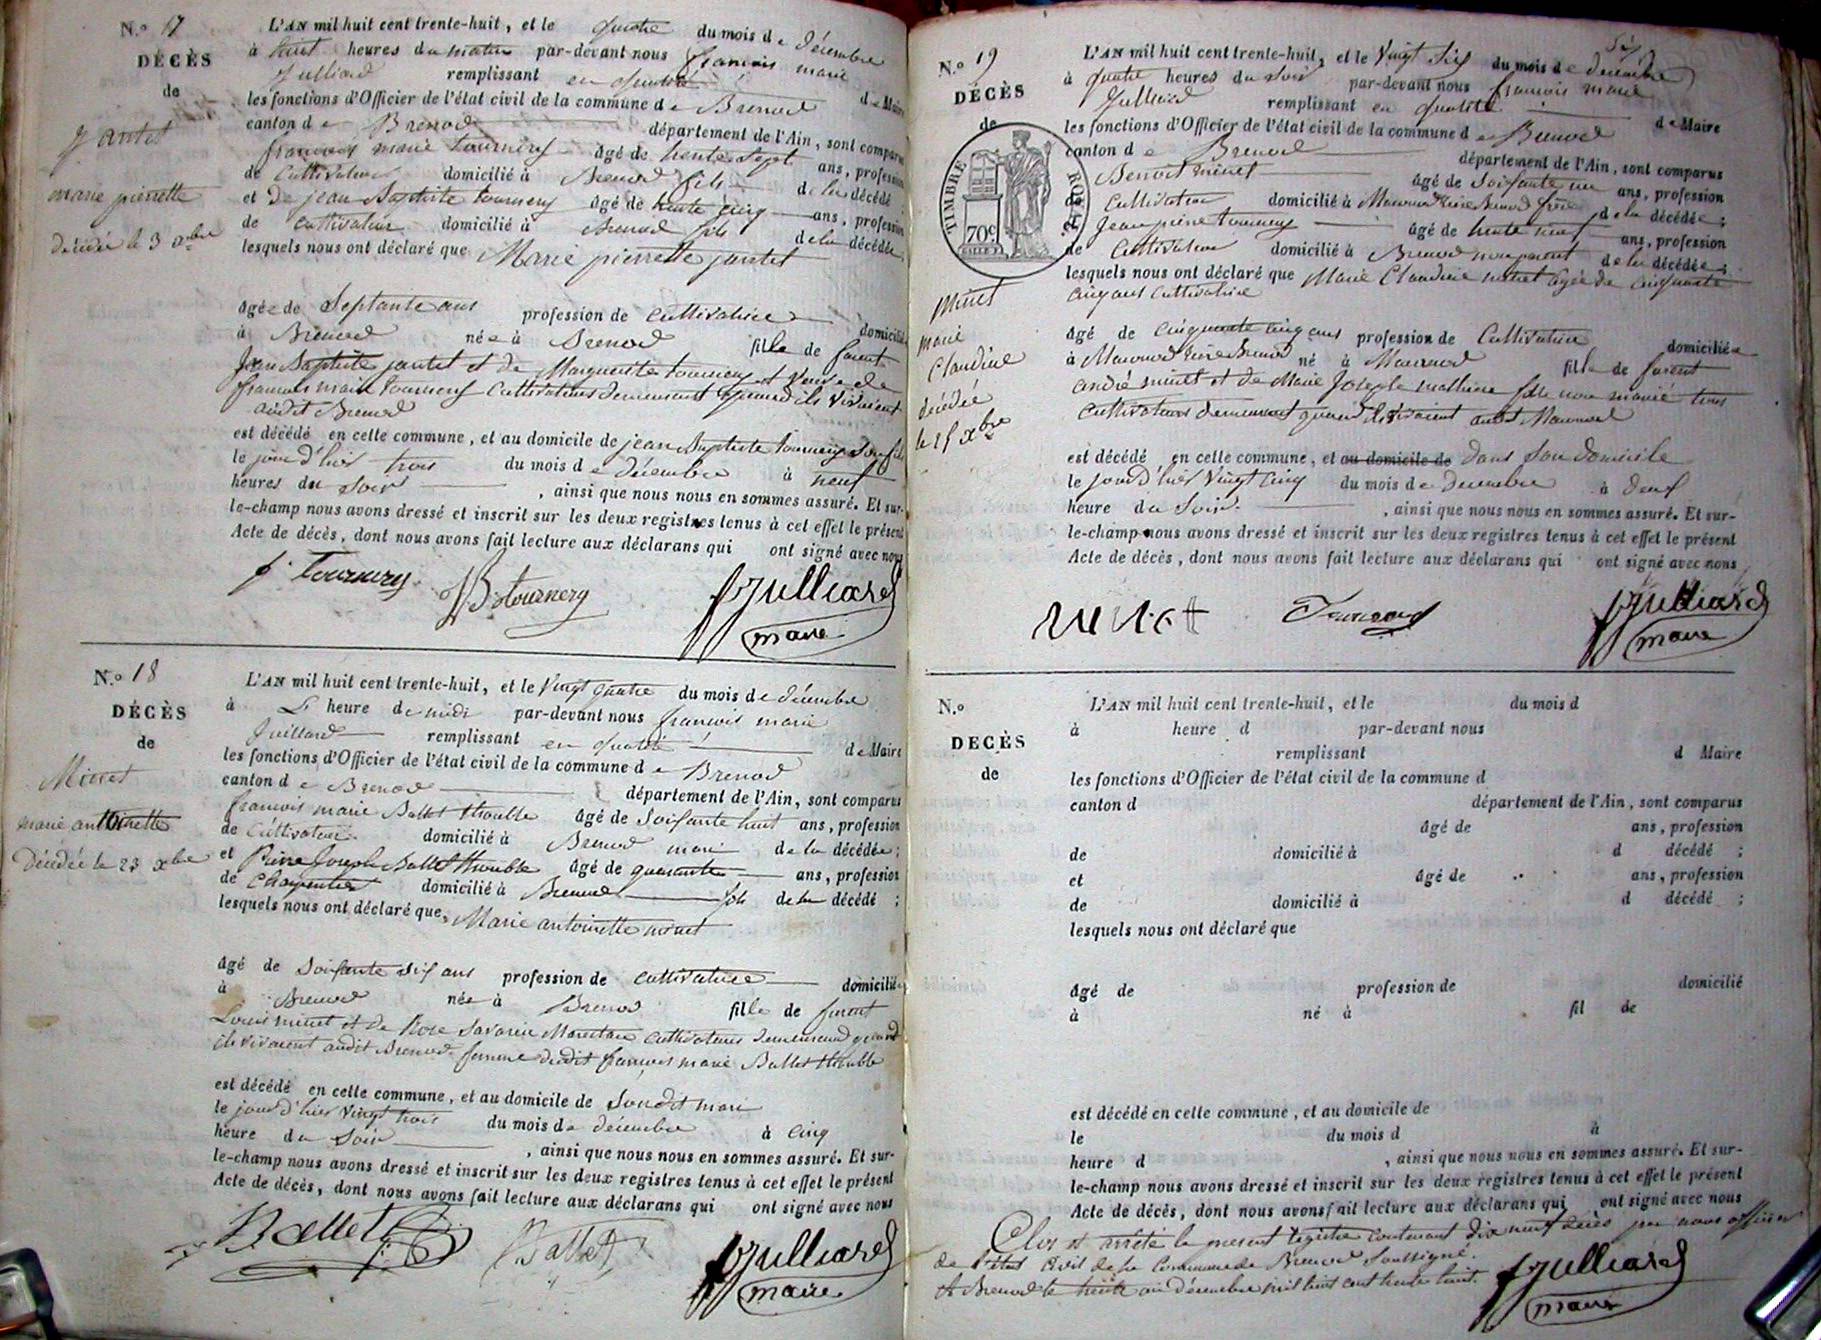 N.o 17
DÉCÈS
de
jantet
marie pierrette
décédée le 3 xbre
L'AN mil huit cent trente-huit, et le quatre du mois de décembre
à huit heures du matin par-devant nous françois marie
Julliard remplissant en qualité de Maire
les fonctions d'Officier de l'état civil de la commune de Brenod
canton de Brenod département de l'Ain, sont comparus
françois marie tournery âgé de trente sept ans, profession
de Cultivateur domicilié à Brenod fils de la décédée
et de jean Baptiste tournery âgé de trente cinq ans, profession
de Cultivateur domicilié à Brenod fils de la décédée,
lesquels nous ont déclaré que Marie pierrette jantet
âgée de Septante ans profession de cultivatrice domiciliée
à Brenod née à Brenod fille de furent
Jean Baptiste jantet et de Marguerite tournery et veuve de
françois marie tournery Cultivateurs demeurant quand ils vivaient
audit Brenod
est décédé en cette commune, et au domicile de jean Baptiste tournery son fils
le jour d'hier trois du mois de décembre à neuf
heures du soir, ainsi que nous nous en sommes assuré. Et sur-
le-champ nous avons dressé et inscrit sur les deux registres tenus à cet effet le présent
Acte de décès, dont nous avons fait lecture aux déclarans qui ont signé avec nous
f. Tournery JB tournery fjulliard
maire
N.o 18
DÉCÈS
de
Minet
marie antoinette
Décédée le 23 xbre
L'AN mil huit cent trente-huit, et le Vingt quatre du mois de décembre
à L' heure de midi par-devant nous françois marie
Juillard remplissant en qualité de Maire
les fonctions d'Officier de l'état civil de la commune de Brenod
canton de Brenod département de l'Ain, sont comparus
françois marie Ballet thouble âgé de Soixante huit ans, profession
de Cultivateur domicilié à Brenod mari de la décédée;
et Pierre Joseph Ballet thouble âgé de quarante ans, profession
de Charpentier domicilié à Brenod fils de la décédé;
lesquels nous ont déclaré que Marie antoinette minet
âgé de Soixante six ans profession de cultivatrice domiciliée
à Brenod née à Brenod fille de furent
Louis minet et de Rose Savarin Cultivateurs demeurand quand
ils vivaient audit Brenod femme dudit françois marie Ballet thouble
est décédé en cette commune, et au domicile de Sondit mari
le jour d'hier vingt trois du mois de décembre à cinq
heure du soir, ainsi que nous nous en sommes assuré. Et sur-
le-champ nous avons dressé et inscrit sur les deux registres tenus à cet effet le présent
Acte de décès, dont nous avons fait lecture aux déclarans qui ont signé avec nous
Ballet Ballet fjulliard
maire
N.o 19
DÉCÈS
de
TIMBRE ROYAL
70c
minet
marie
Claudine
décédée
le 25 xbre
L'AN mil huit cent trente-huit, et le Vingt Six du mois de décembre
à quatre heures du soir par-devant nous françois marie
Julliard remplissant en qualité de Maire
les fonctions d'Officier de l'état civil de la commune de Brenod
canton de Brenod département de l'Ain, sont comparus
Benoit minet âgé de Soixante un ans, profession
Cultivateur domicilié à frère de la décédée;
Jean pierre tournery âgé de trente neuf ans, profession
de Cultivateur domicilié à Brenod non parent de la décédée;
lesquels nous ont déclaré que Marie Claudine minet âgée de cinquante
cinq ans Cultivatrice
âgé de Cinquante cinq ans profession de Cultivatrice domiciliée
à né à fille de furent
andré minet et de Marie Josephe fille non mariée tous
cultivateurs demeurant quand ils vivaient audit
est décédé en cette commune, et au domicile de dans son domicile
le jour d'hier vingt cinq du mois de décembre à deux
heure du soir, ainsi que nous nous en sommes assuré. Et sur-
le-champ nous avons dressé et inscrit sur les deux registres tenus à cet effet le présent
Acte de décès, dont nous avons fait lecture aux déclarans qui ont signé avec nous
minett fjulliard
maire
N.o
DECÈS
de
L'AN mil huit cent trente-huit, et le du mois d
à heure d par-devant nous
remplissant d Maire
les fonctions d'Officier de l'état civil de la commune d
canton d département de l'Ain, sont comparus
âgé de ans, profession
de domicilié à d décédé;
et âgé de ans, profession
de domicilié à d décédé;
lesquels nous ont déclaré que
âgé de profession de domicilié
à né à fil de
est décédé en cette commune, et au domicile de
le du mois d à
heure d, ainsi que nous nous en sommes assuré. Et sur-
le-champ nous avons dressé et inscrit sur les deux registres tenus à cet effet le présent
Acte de décès, dont nous avons fait lecture aux déclarans qui ont signé avec nous
Clos et arrêté le present registre contenant dix neuf décès par nous officier
de l'état civil de la Commune de Brenod Soussigné.
A Brenod le trente un décembre mil huit cent trente huit.
fjulliard
maire